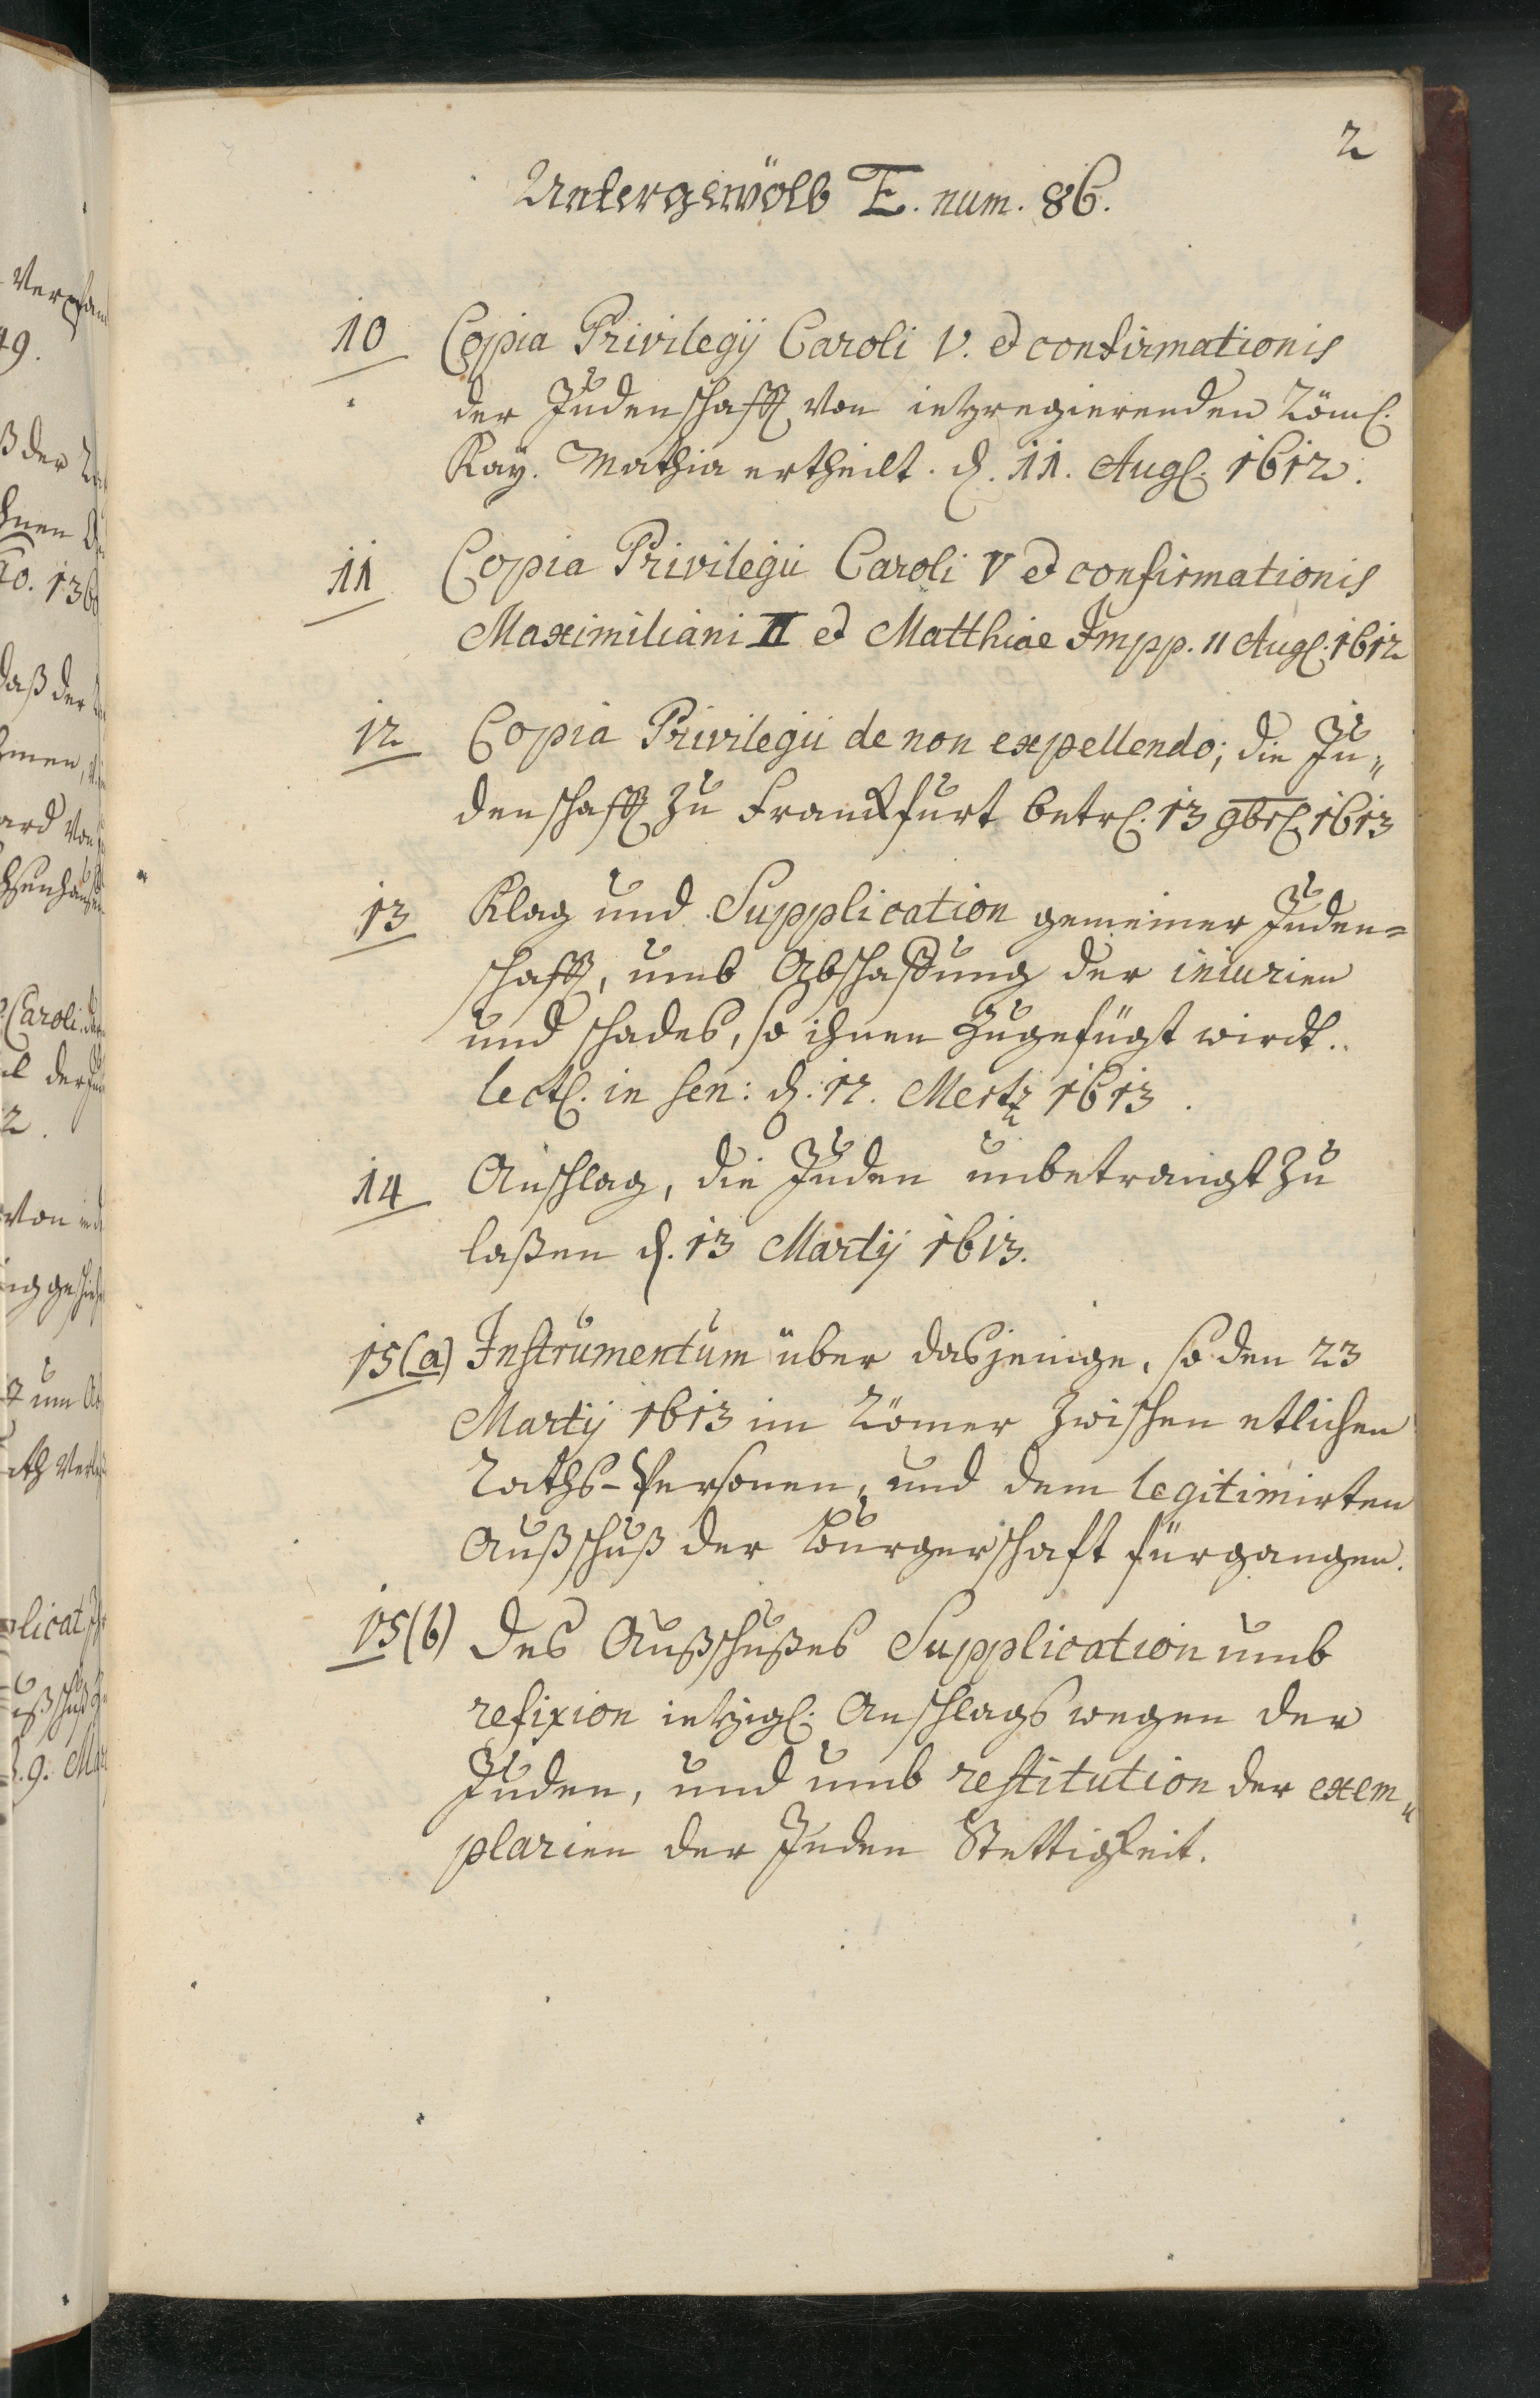 2
Untergewölb E. num. 86.
10 Copia Privilegij Caroli V. et confirmationis
der Judenschafft von ietzregierenden Röml.
Kay. Mathia ertheilt. d. 11. Aug. 1612.
11 Copia Privilegii Caroli V et confirmationis
Maximiliani II et Matthiae Impp. 11 Aug. 1612
12 Copia Privilegii de non expellendo; die Ju„
denschafft zu Franckfurt betr. 13 9br. 1613
13 Klag und Supplication gemeiner Juden=
schafft, umb Abschaffung der iniurien
und schades, so ihnen zugefügt wirdt.
lect. in Sen: d. 12. Mertz 1613.
14 Anschlag, die Juden unbetrangt zu
laßen d. 13 Martij 1613.
15(a) Instrumentum über dasjenige, so den 23
Martij 1613 im Römer zwischen etlichen
Raths-Personen, und dem legitimirten
Außschuß der Burgerschaft fürgangen.
15(b) Des Außschußes Supplication umb
refixion ietzigl. Anschlags wegen der
Juden, und umb restitution der exem„
plarien der Juden Stettigkeit.